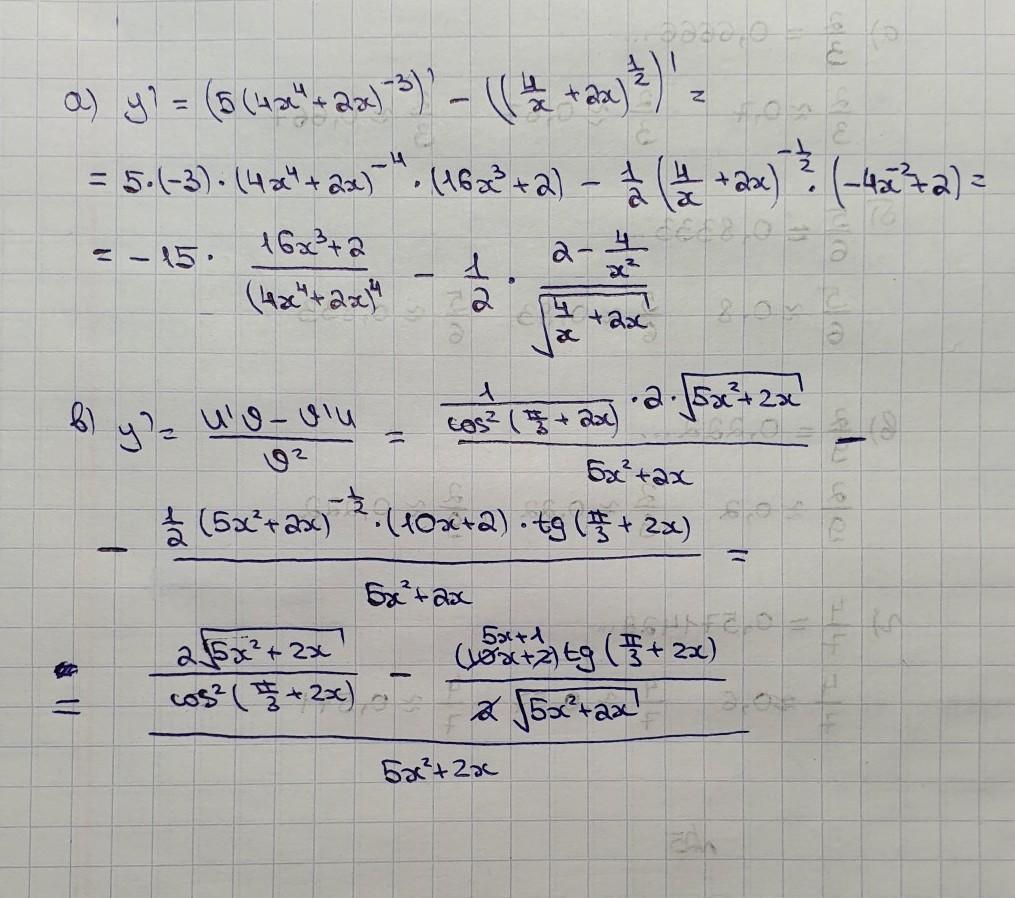 а) y' = (5(4x⁴+2x)⁻³)' − ((4/x + 2x)^(1/2))' =
= 5·(-3)·(4x⁴+2x)⁻⁴·(16x³+2) − 1/2 (4/x + 2x)^(-1/2)·(-4x⁻²+2) =
= −15· (16x³+2)/(4x⁴+2x)⁴ − 1/2 · (2 − 4/x²)/√(4/x + 2x)
в) y' = (u'v − v'u)/v² = (1/cos²(π/3 + 2x) · 2 · √(5x²+2x))/(5x²+2x) −
− (1/2 (5x²+2x)^(-1/2)·(10x+2)·tg(π/3 + 2x))/(5x²+2x) =
= (2√(5x²+2x)/cos²(π/3 + 2x) − 5x+1 (10x+2)tg(π/3 + 2x)/(2√(5x²+2x)))/(5x²+2x)